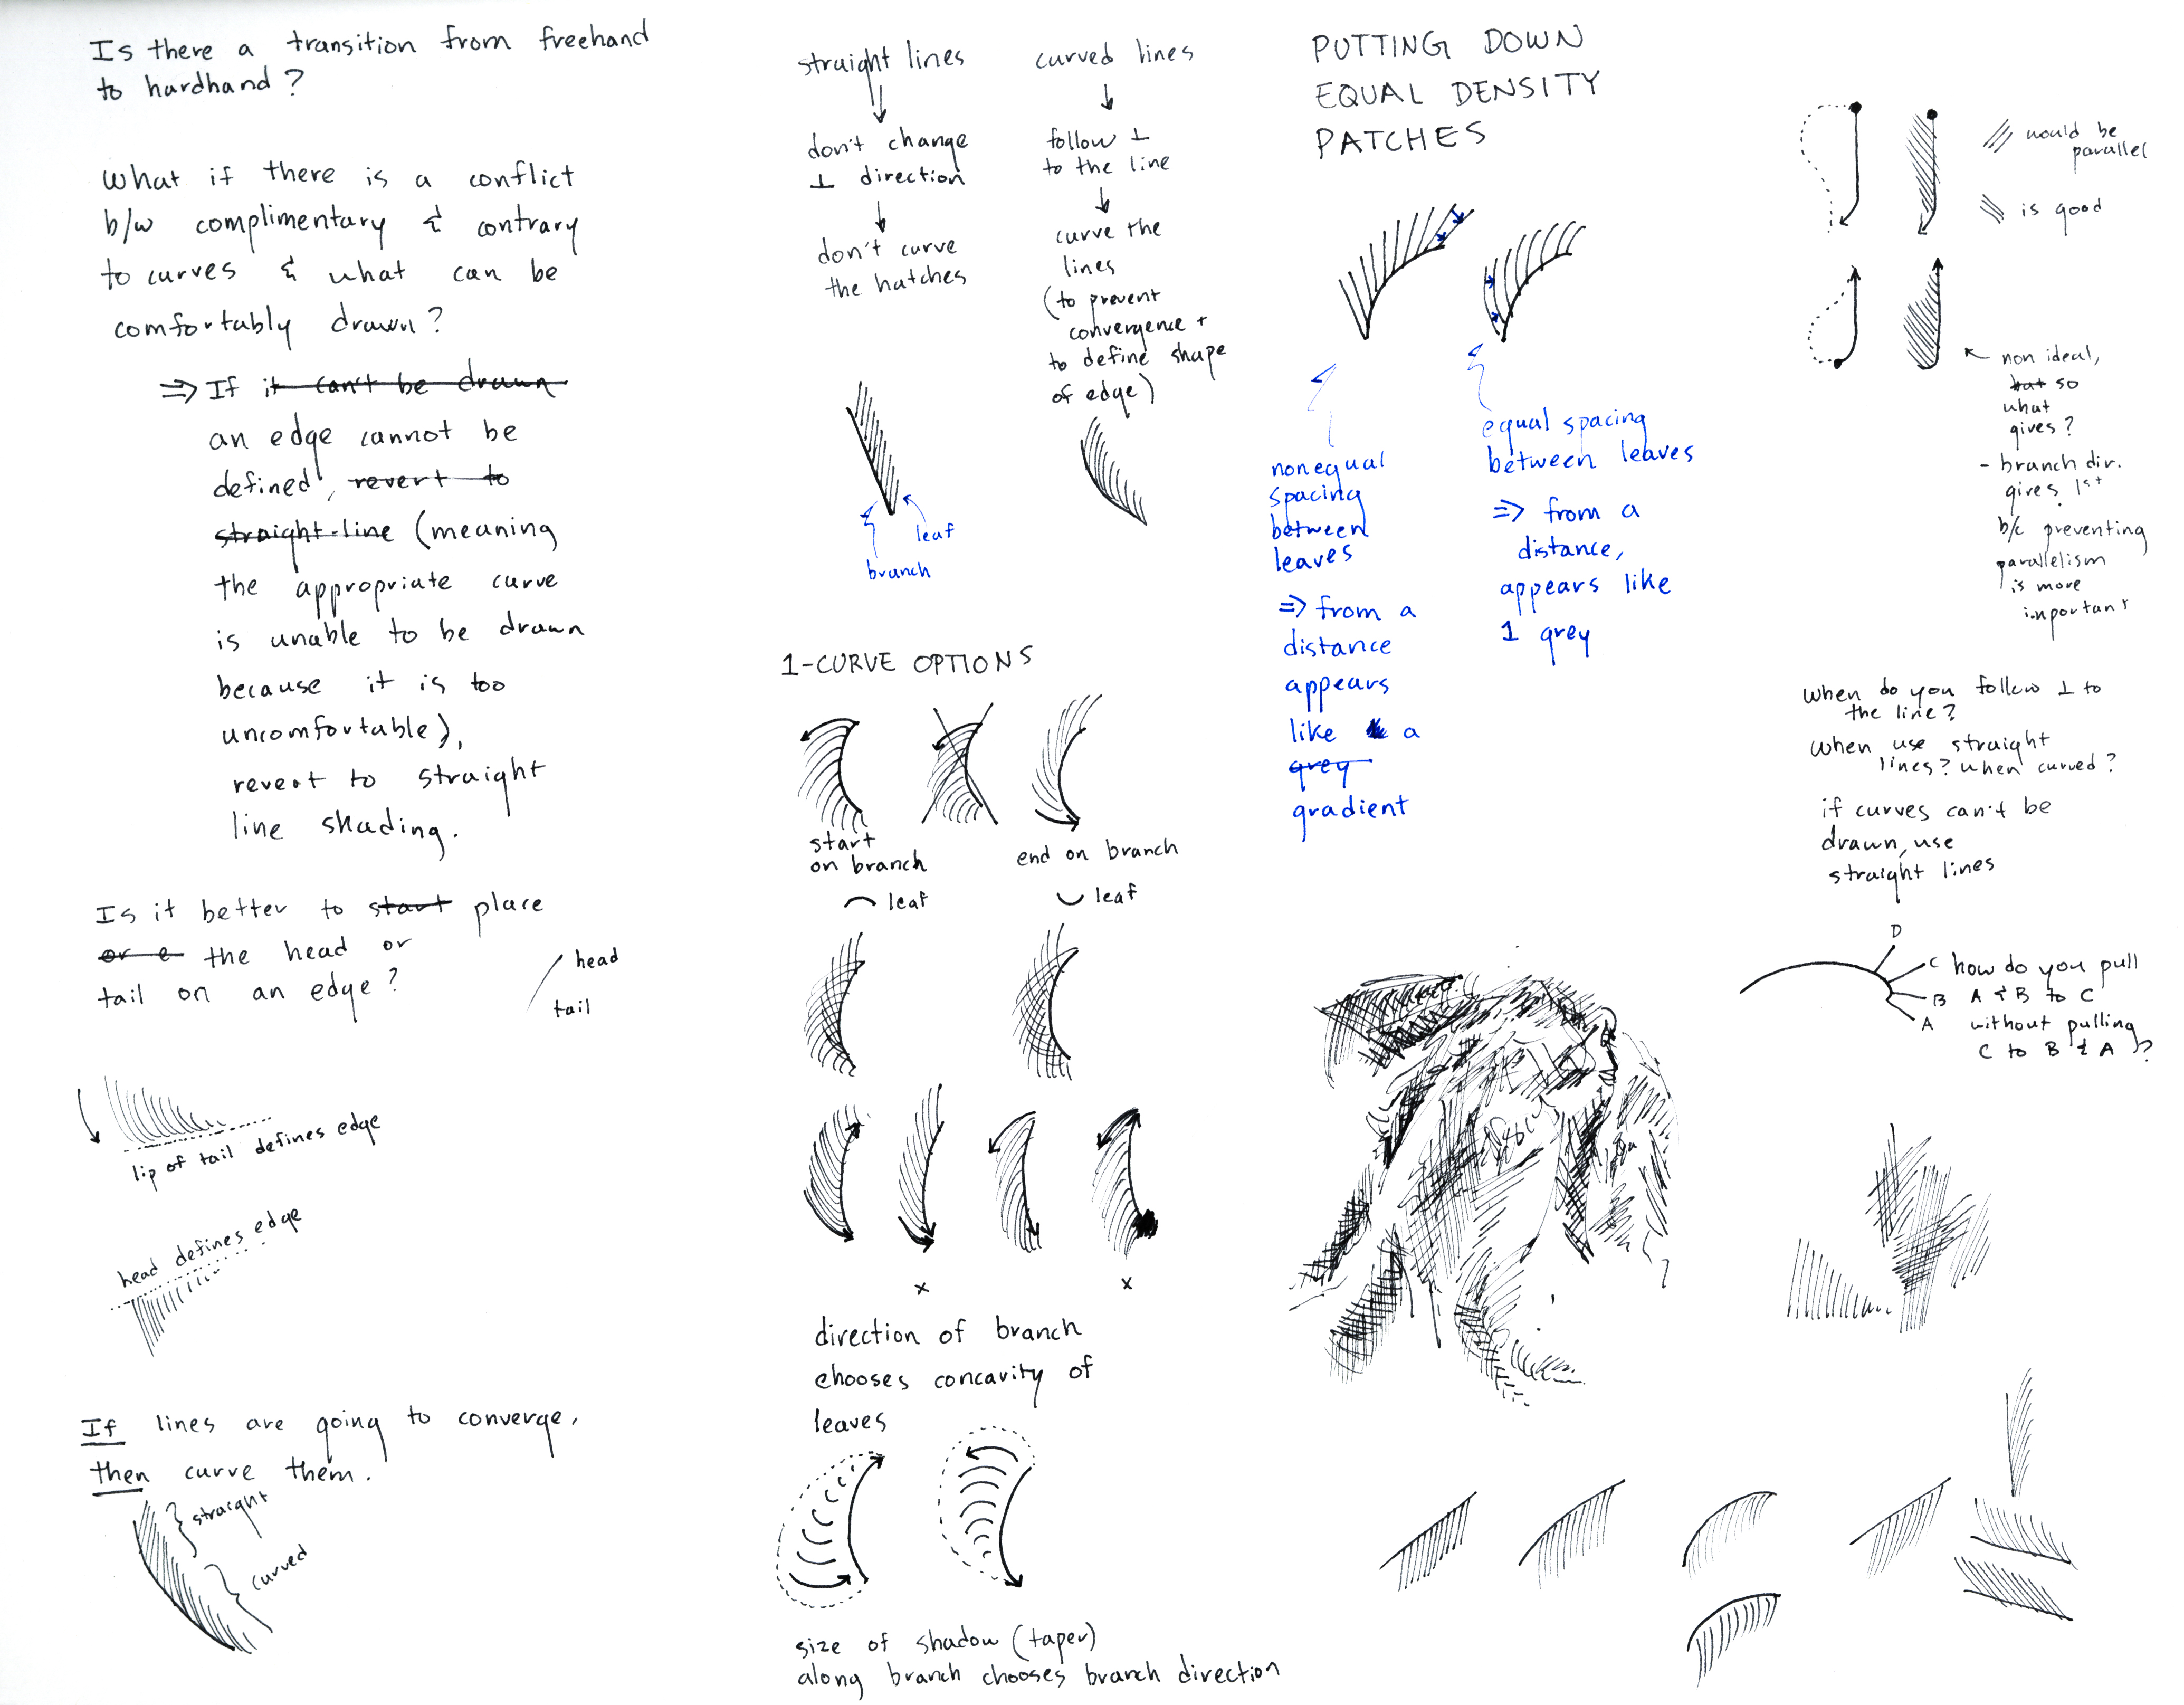 Is there a transition from freehand
to hardhand?
What if there is a conflict
b/w complimentary & contrary
to curves & what can be
comfortably drawn?
⇒ If it can't be drawn
an edge cannot be
defined, revert to
straight-line (meaning
the appropriate curve
is unable to be drawn
because it is too
uncomfortable),
revert to straight
line shading.
Is it better to start place
or e the head or
tail on an edge?
head
tail
lip of tail defines edge
head defines edge
If lines are going to converge,
then curve them.
straight
curved
straight lines
↓
don't change
⊥ direction
↓
don't curve
the hatches
leaf
branch
curved lines
↓
follow ⊥
to the line
↓
curve the
lines
(to prevent
convergence +
to define shape
of edge)
1-CURVE OPTIONS
start
on branch
leaf
end on branch
leaf
x
x
direction of branch
chooses concavity of
leaves
size of shadow (taper)
along branch chooses branch direction
PUTTING DOWN
EQUAL DENSITY
PATCHES
nonequal
spacing
between
leaves
⇒ from a
distance
appears
like a
grey
gradient
equal spacing
between leaves
⇒ from a
distance,
appears like
1 grey
would be
parallel
is good
non ideal,
but so
what
gives?
- branch dir.
gives 1st
b/c preventing
parallelism
is more
important
When do you follow ⊥ to
the line?
When use straight
lines? when curved?
if curves can't be
drawn, use
straight lines
D
C
B
A
how do you pull
A & B to C
without pulling
C to B & A?